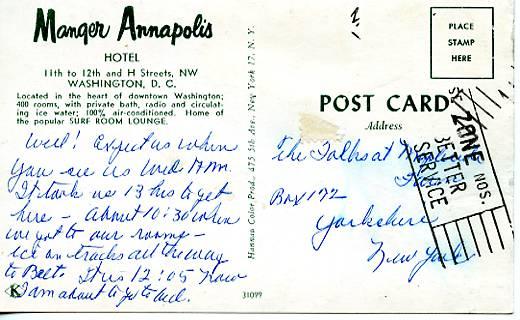 Manger Annapolis
HOTEL
11th to 12th and H Streets, NW
WASHINGTON, D. C.
Located in the heart of downtown Washington;
400 rooms, with private bath, radio and circulat-
ing ice water; 100% air-conditioned. Home of
the popular SURF ROOM LOUNGE.
Well! Expect us when
you see us Wed P.M.
It took us 13 hrs to get
here - About 10:30 when
we got to our rooms -
ice on tracks all the way
to Balt. It is 12:05 now
& am about to go to bed.
K
31099
Hannau Color Prod. 475 5th Ave. New York 17, N. Y.
PLACE
STAMP
HERE
POST CARD
Address
The Folks at
Box 172
Yorkshire
New York
ZONE NOS.
BETTER
SERVICE